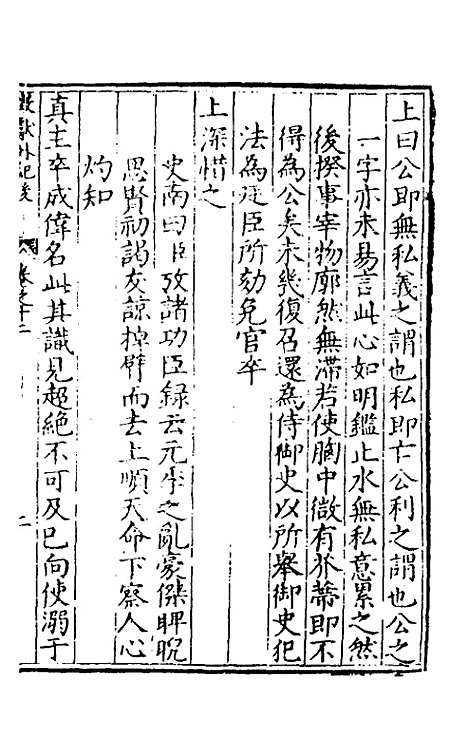 上曰公即無私義之謂也私即亡公利之謂也公之
一字亦未易言此心如明鑑止水無私意累之然
後揆事宰物廓然無滯若使胸中微有芥蒂即不
得為公矣未幾復召還為侍御史以所舉御史犯
法為廷臣所劾免官卒
上深惜之
史南曰臣攷諸功臣錄云元季之亂豪傑睥睨
思賢初謁友諒掉臂而去上順天命下察人心
灼知
真主卒成偉名此其識見超絕不可及已向使溺于
獻外紀後 卷之十二 二